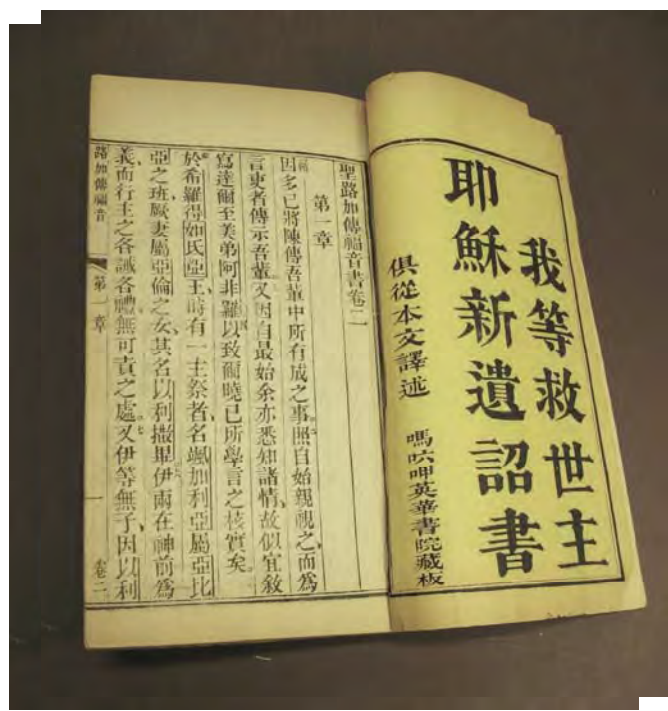 我等救世主
耶穌新遺詔書
俱從本文譯述
嗎𠯈呷英華書院藏板
聖路加傳福音書卷二
第一章
因多已將陳傳吾輩中所有成之事照自始親視之而為
言吏者傳示吾輩又因自最始余亦悉知諸情故似宜敘
寫達爾至美弟阿非羅以致爾曉已所學言之核實矣
於希羅得如氏亞王時有一主祭者名㗭加利亞屬亞比
亞之班厥妻屬亞倫之女其名以利撒畢伊兩在神前為
義而行主之各誡各禮無可責之處又伊等無子因以利
路加傳福音
第一章
一
卷二